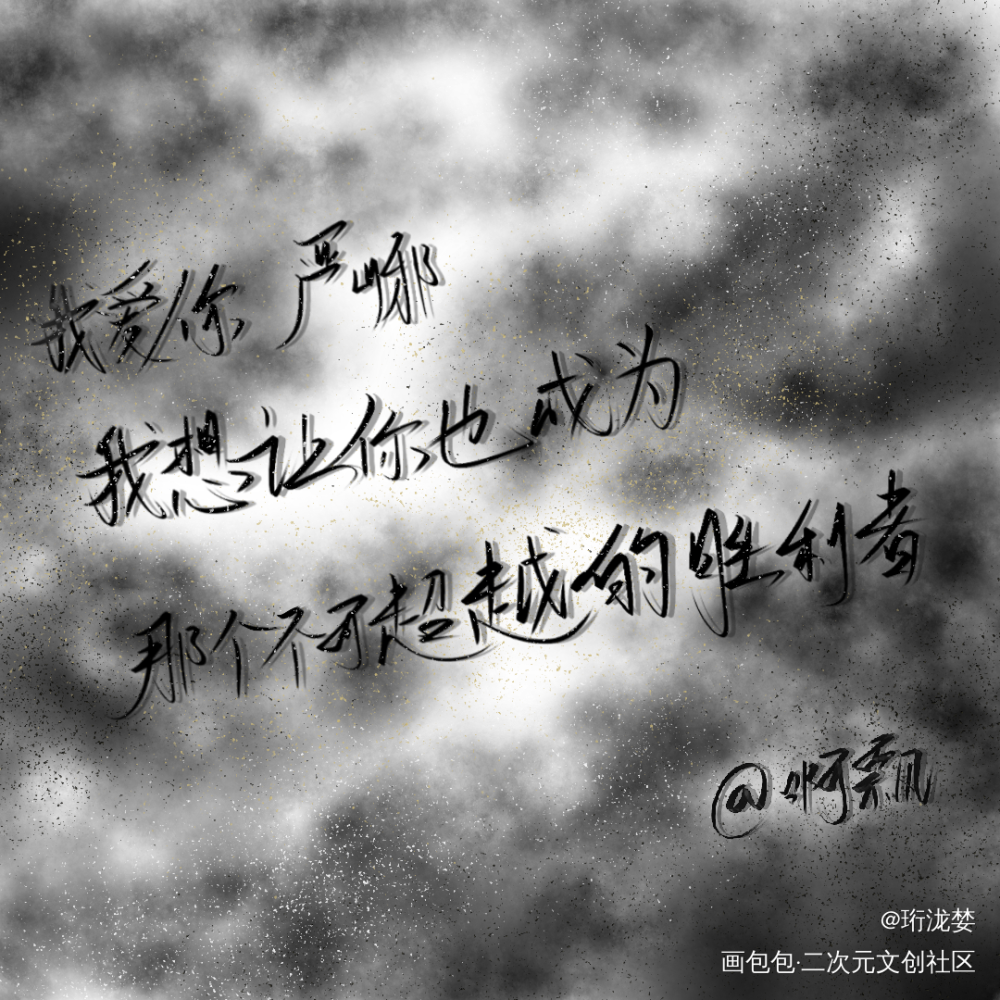 我爱你 严娜
我想让你也成为
那个不可超越的胜利者
@啊飘
@珩泷婪
画包包·二次元文创社区